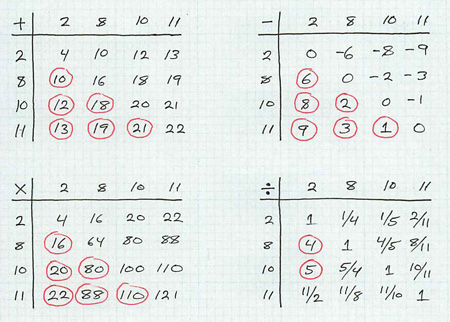 + 2 8 10 11
2 4 10 12 13
8 10 16 18 19
10 12 18 20 21
11 13 19 21 22
− 2 8 10 11
2 0 -6 -8 -9
8 6 0 -2 -3
10 8 2 0 -1
11 9 3 1 0
× 2 8 10 11
2 4 16 20 22
8 16 64 80 88
10 20 80 100 110
11 22 88 110 121
÷ 2 8 10 11
2 1 1/4 1/5 2/11
8 4 1 4/5 8/11
10 5 5/4 1 10/11
11 11/2 11/8 11/10 1